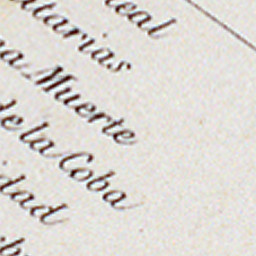 eal
ltarias
a Muerte
de la Coba
idad